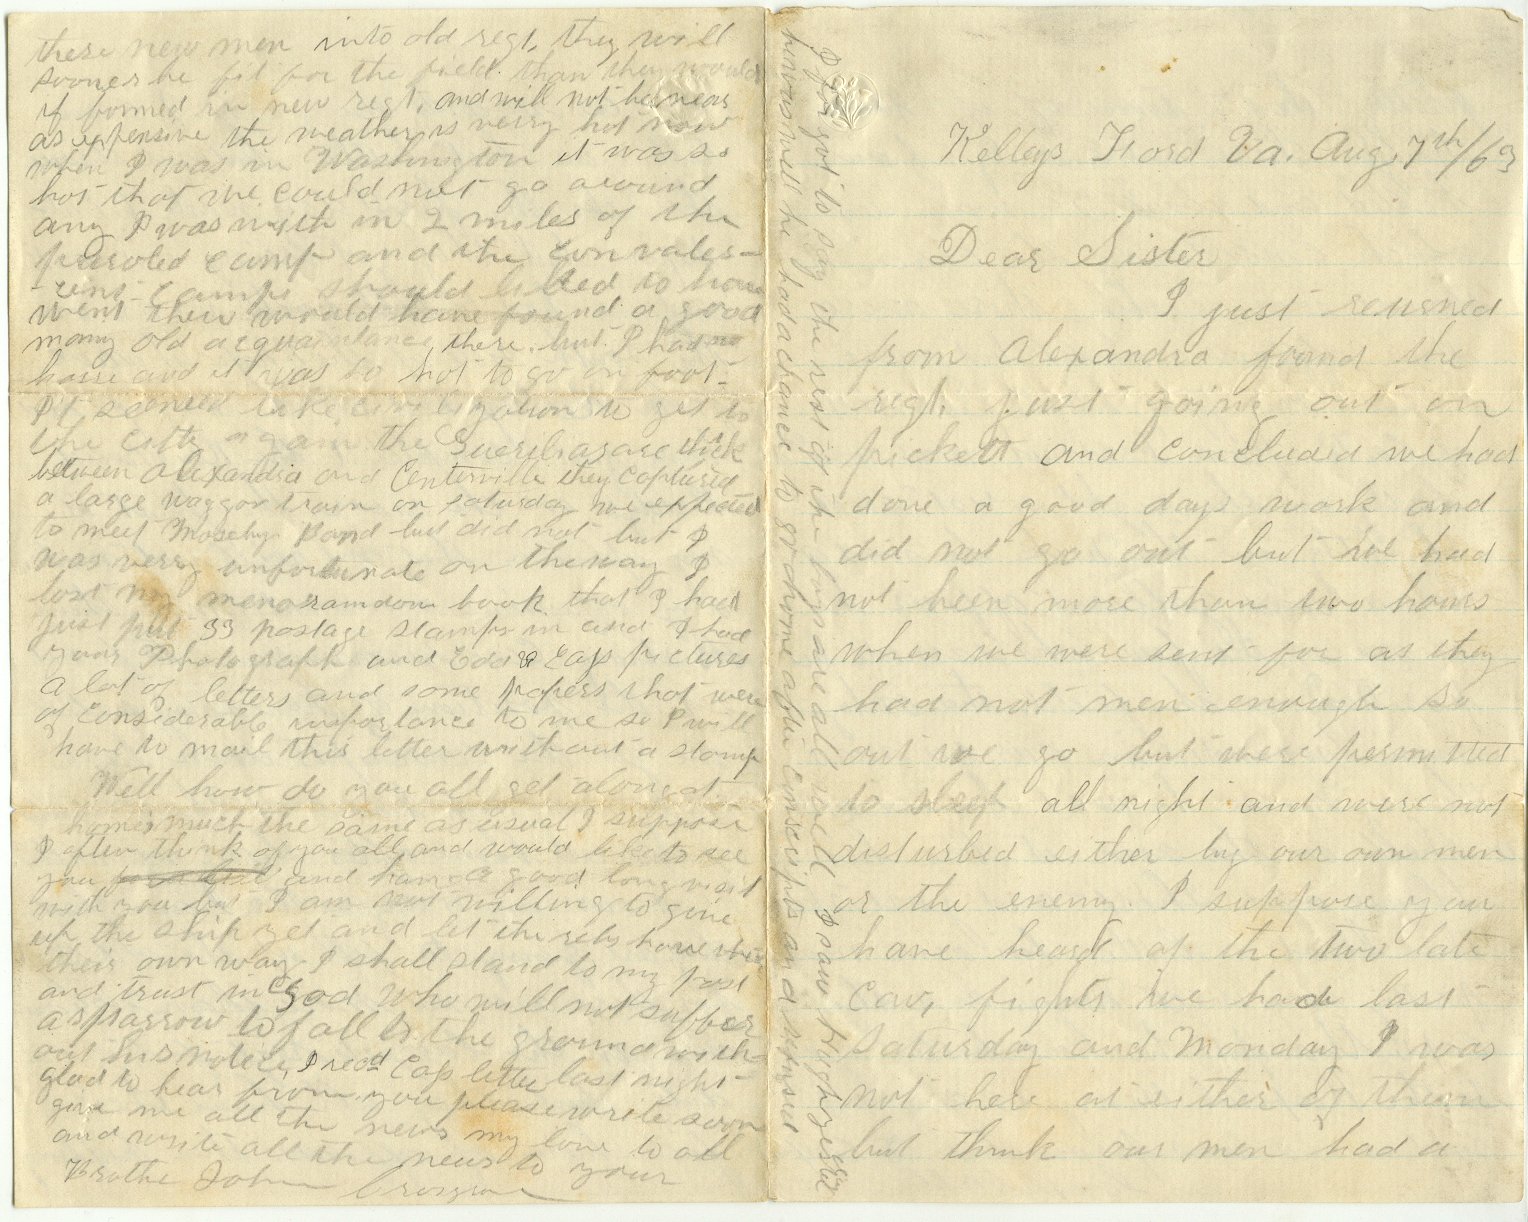 Kelleys Ford Va. Aug, 7th/63
Dear Sister
I just returned
from Alexandra found the
regt. just going out on
pickett and concluded we had
done a good days work and
did not go out but we had
not been more than two hours
when we were sent for as they
had not men enough so
out we go but were permitted
to sleep all night and were not
disturbed either by our own men
or the enemy. I suppose you
have heard of the two late
Cav, fights we had last
Saturday and Monday I was
not here at either of them
but think our men had a
these new men into old regt, they will
sooner be fit for the field than they would
if formed in new regt, and will not be near
as expensive the weather is verry hot now
when I was in Washington it was so
hot that we could not go around
any I was with in 2 miles of the
paroled camp and the convales-
-cent camps should liked to have
went their would have found a good
many old acquaintance there. but I had no
horse and it was to hot to go on foot-
It seemed like civilization to get to
the city again the Guerrilas are thick
between Alexandria and Centerville they captured
a large waggon train on saturday we expected
to meet Moseby Band but did not but I
was verry unfortunate on the way I
lost my memorandom book that I had
just put 33 postage stamps in and I had
your Photograph and Edd & Caps pictures
a lot of letters and some papers that were
of considerable importance to me so I will
have to mail this letter without a stamp
Well how do you all get along at
home much the same as usual I suppose
I often think of you all and would like to see
you and have a good long visit
with you but I am not willing to give
up the ship yet and let the rebs have
their own way I shall stand to my post
and trust in God who will not suffer
a sparrow to fall to the ground with-
out his notice, I recd Caps letter last night-
glad to hear from you please write soon
give me all the news my love to all
and write all the news to your
Brothe John
I for got to say the rest of the boys are all well I saw Hugh yester
he was well he had a chance to go home after conscripts and refused